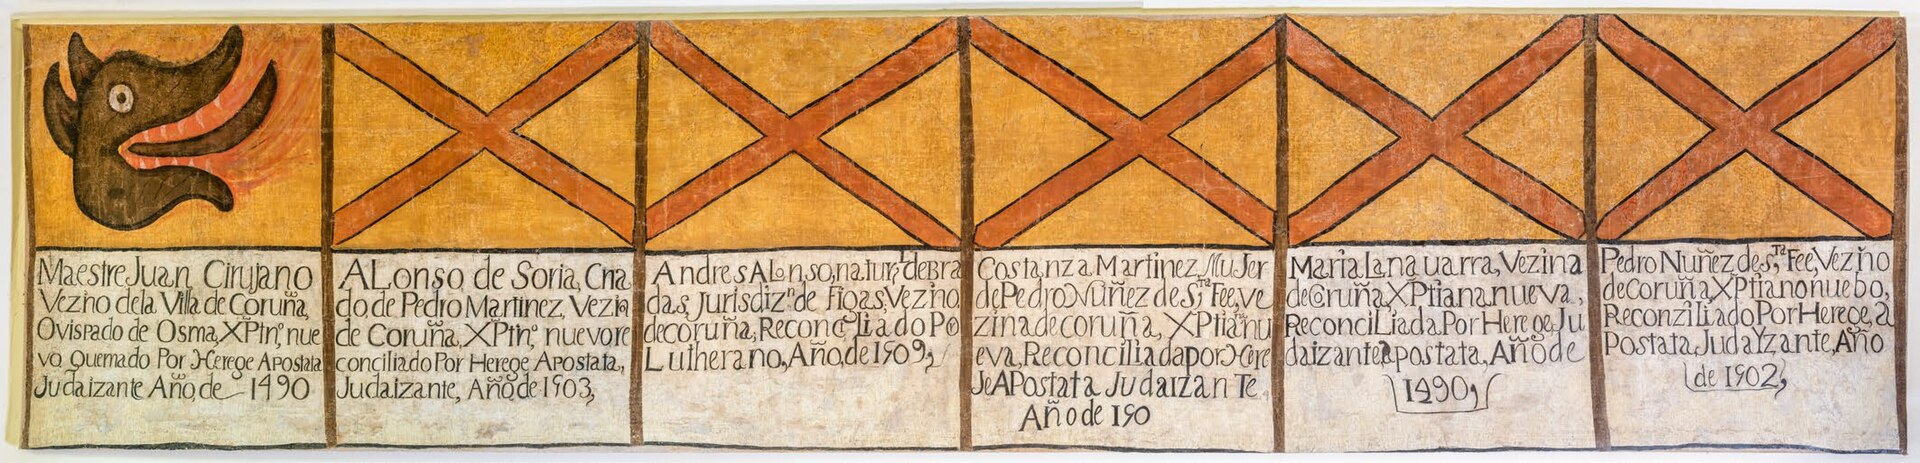 Maestre Juan Cirujano
Vezño de la Villa de Coruña,
Ovispado de Osma, XPtnº, nue
vo quemado Por Herege Apostata
Judaizante Año, de 1490
ALonso de Soria, Cria
do, de Pedro Martinez, Vezio
de Coruña, XPtnº nuevo re
conciliado Por Herege Apostata,
Judaizante, Año de 1503,
Andres ALonso, natur.l de Bra
das, Jurisdizn. de Figas, Vezino
de coruña, Reconciliado Po
Lutherano, Año, de 1509,
Costanza Martinez, MuJer
de Pedro Nuñez de S.ta Fee, ve
zina de coruña, XPtiana nu
eva, Reconciliada por Here
Je APostata JudaizanTe.
Año de 150
Maria La nauarra, Vezina
de Coruña XPtiana nueva,
ReconciLiada Por Herege, Ju
daizante apostata, Año de
1490,
Pedro Nuñez de S.ta Fee, Vezño
de coruña, XPtiano nuebo,
Reconziliado Por Herege, a
Postata, JudaYzante, Año
de 1502,